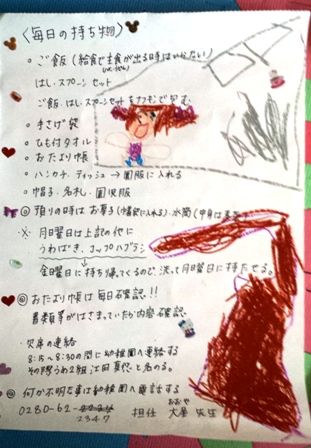 〈毎日の持ち物〉
○ ご飯(給食で主食が出る時はいらない)
はし・スプーンセット
ご飯・はし・スプーンセットをナフキンで包む
○ 手さげ袋
○ ひも付タオル
○ おたより帳
○ ハンカチ、ティッシュ → 園服に入れる
○ 帽子・名札・園児服
◎ 預りの時は お菓子(
に入れる)・水筒(中身は
※ 月曜日は上記の他に
うわばき、コップ、ハブラシ
金曜日に持ち帰ってくるので洗って月曜日に持たせる。
◎ おたより帳は毎日確認!!
書類等がはさまっていたら内容確認
・欠席の連絡
8:15~8:30の間に幼稚園へ連絡する
その際うめ2組、江田
と名のる。
◎ 何か不明な事は幼稚園へ電話する
0280-62-
2347
担任 大屋 先生
おおや